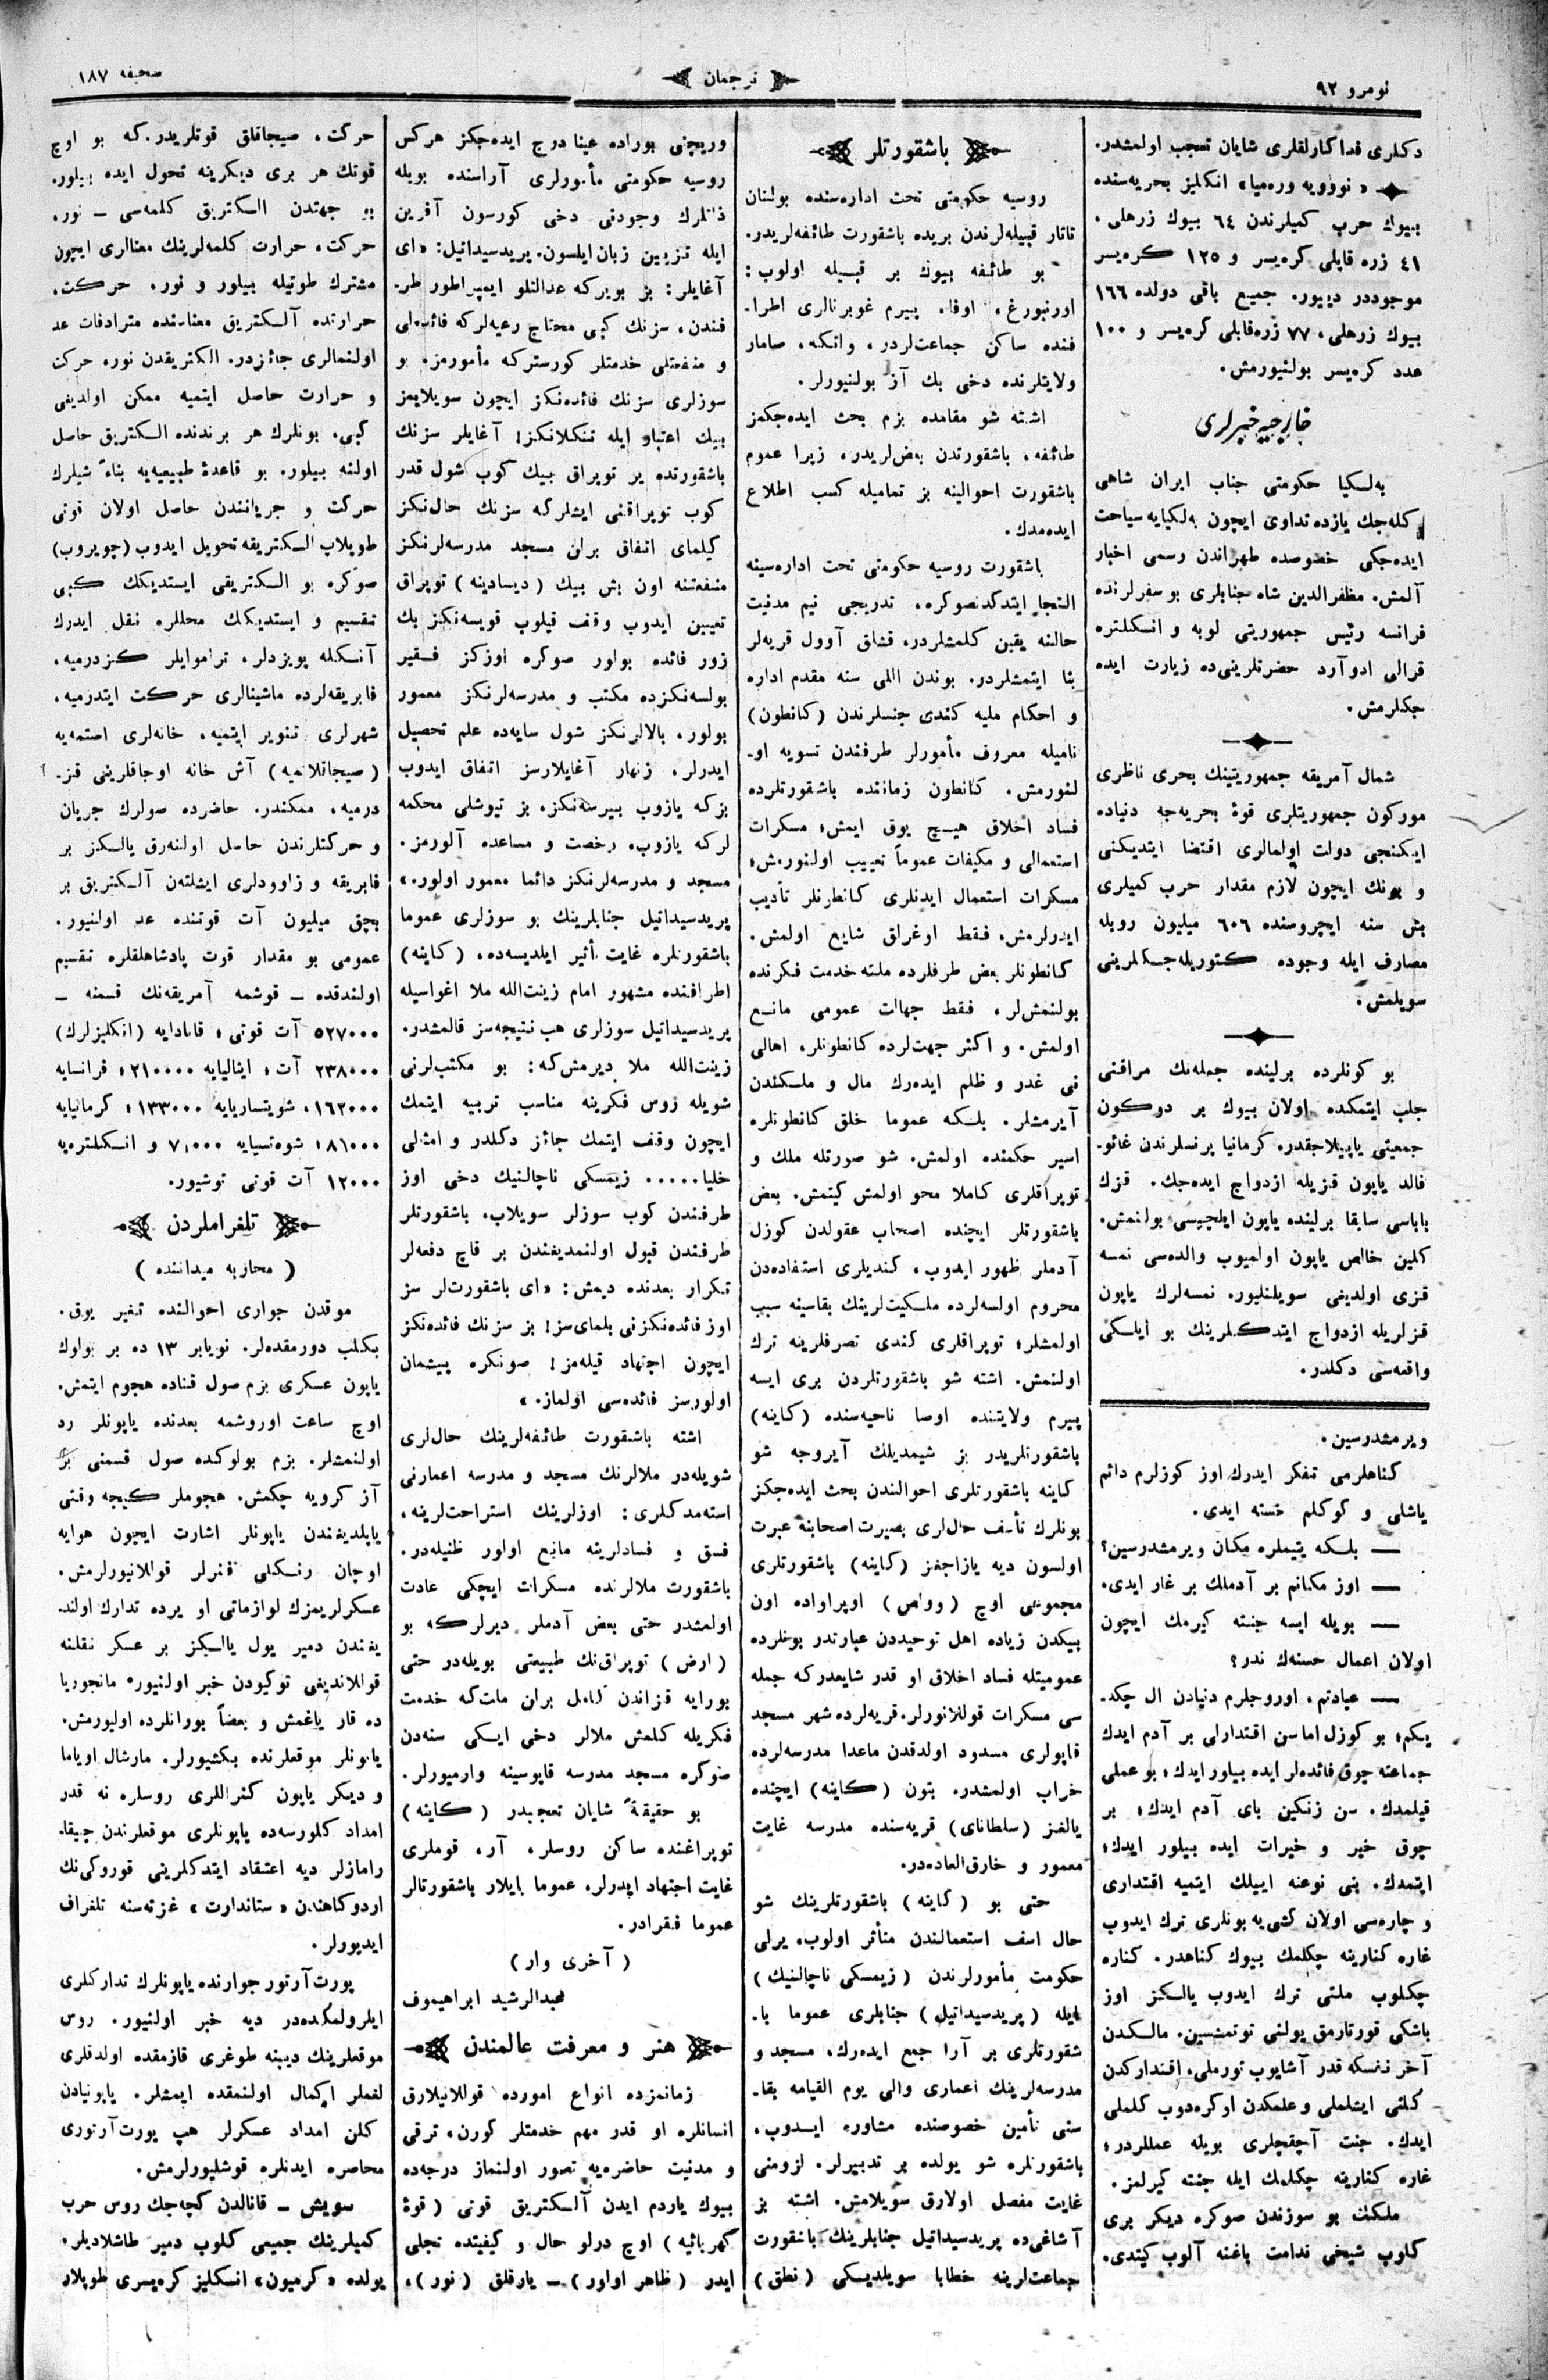 نومرو ٩٢
ترجمان
صحیفه ١٨٧
دکلری فداکارلقلری شایان تعجب اولمشدر.
« نووویه ورەمیا» انکلیز بحریەسنده
بیوك حرب کمیلرندن ٦٤ بیوك زرهلی ،
٤١ زره قاپلی کرەیسر و ١٢٥ کرەیسر
موجوددر دییور. جمیع باقی دولده ١٦٦
بیوك زرهلی، ٧٧ زرەقاپلی کرەیسر و ١٠٠
عدد کرەیسر بولنیورمش.
خارجیه خبرلری
بەلکیا حکومتی جناب ایران شاهی
کلەجك یازده تداوی ایچون بەلکیایه سیاحت
ایدەجکی خصوصده طهراندن رسمی اخبار
آلمش. مظفرالدین شاه جنابلری بو سفرلرنده
فرانسه رئیس جمهوریتی لوبه و انکلتره
قرالی ادوآرد حضرتلرینیده زیارت ایده
جکلرمش.
شمال آمریقه جمهوریتینك بحری ناظری
مورکون جمهوریتلری قوهٔ بحریەجه دنیاده
ایکنجی دولت اولمالری اقتضا ایتدیکنی
و بونك ایچون لازم مقدار حرب کمیلری
بش سنه ایچروسنده ٦٠٦ میلیون روبله
مصارف ایله وجوده کتوریلەجکلرینی
سویلمش.
بو کونلرده برلینده جملەنك مراقنی
جلب ایتمکده اولان بیوك بر دوکون
جمعیتی یاپیلاجقدر. کرمانیا پرنسلرندن غائو-
فالد یاپون قزیله ازدواج ایدەجك. قزك
باباسی سابقا برلینده یاپون ایلچیسی بولنمش.
کلین خالص یاپون اولمیوب والدەسی نمسه
قزی اولدیغی سویلنلیور. نمسەلرك یاپون
قزلریله ازدواج ایتدکلرینك بو ایلکی
واقعەسی دکلدر.
ویرمشدرسین.
کناهلرمی تفکر ایدرك اوز کوزلرم دائم
یاشلی و کوکلم خسته ایدی.
— بلکه یتیملره مکان ویرمشدرسین؟
— اوز مکانم بر آدملك بر غار ایدی.
— بویله ایسه جنته کیرمك ایچون
اولان اعمال حسنەك ندر؟
— عبادتم، اوروجلرم دنیادن ال چکد-
یکم؛ بو کوزل اماسن اقتدارلی بر آدم ایدك
جماعته چوق فائدەلر ایده بیلور ایدك؛ بو عملی
قیلمدك. سن زنکین بای آدم ایدك؛ بر
چوق خیر و خیرات ایده بیلور ایدك؛
ایتمدك. بنی نوعنه اییلك ایتمیه اقتداری
و چارەسی اولان کشی یه بونلری ترك ایدوب
غاره کنارینه چکلمك بیوك کناهدر. کناره
چکلوب ملتی ترك ایدوب یالکز اوز
باشکی قورتارمق یولنی توتمشسین. مالکدن
آخر نفسکه قدر آشایوب تورملی، اقتدارکدن
کلنی ایشلملی و علمکدن اوکرەدوب کلملی
ایدك. جنت آچقچلری بویله عمللردر؛
غاره کنارینه چکلمك ایله جنته کیرلمز.
ملکك بو سوزندن صوکره دیکر بری
کلوب شیخی ندامت باغنه آلوب کیتدی.
باشقورتلر
روسیه حکومتی تحت ادارەسنده بولنان
تاتار قبیلەلرندن بریده باشقورت طائفەلریدر.
بو طائفه بیوك بر قبیله اولوب:
اورنبورغ، اوفا، پیرم غوبرنالری اطرا-
فنده ساکن جماعتلردر، واتکه، صامار
ولایتلرنده دخی بك آز بولنیورلر.
اشته شو مقامده بزم بحث ایدەجکمز
طائفه، باشقورتدن بعضلریدر، زیرا عموم
باشقورت احوالینه بز تمامیله کسب اطلاع
ایدەمدك.
باشقورت روسیه حکومتی تحت ادارەسینه
التجا ایتدکدنصوکره، تدریجی نیم مدنیت
حالنه یقین کلمشلردر، قشلاق آوول قریەلر
بنا ایتمشلردر. بوندن اللی سنه مقدم اداره
و احکام ملیه کندی جنسلرندن (کانطون)
نامیله معروف مأمورلر طرفندن تسویه او-
لنورمش. کانطون زماننده باشقورتلرده
فساد اخلاق هیچ یوق ایمش؛ مسکرات
استعمالی و مکیفات عموماً تعییب اولنورمش؛
مسکرات استعمال ایدنلری کانطونلر تأدیب
ایدرلرمش، فقط اوغراق شایع اولمش.
کانطونلر بعض طرفلرده ملته خدمت فکرنده
بولنمشلر، فقط جهالت عمومی مانع
اولمش. و اکثر جهتلرده کانطونلر، اهالی
نی غدر و ظلم ایدەرك مال و ملکندن
آیرمشلر. بلکه عموما خلق کانطونلره
اسیر حکمنده اولمش. شو صورتله ملك و
توپراقلری کاملا محو اولمش کیتمش. بعض
باشقورتلر ایچنده اصحاب عقولدن کوزل
آدملر ظهور ایدوب، کندیلری استفادەدن
محروم اولسەلرده ملکیتلرینك بقاسینه سبب
اولمشلر؛ توپراقلری کندی تصرفلرینه ترك
اولنمش. اشته شو باشقورتلردن بری ایسه
پیرم ولایتنده اوصا ناحیەسنده (کاینه)
باشقورتلریدر بز شیمدیلك آیروجه شو
کاینه باشقورتلری احوالندن بحث ایدەجکز
بونلرك تأسف حاللری بصیرت اصحابنه عبرت
اولسون دیه یازاجغز (کاینه) باشقورتلری
مجموعی اوچ (وولص) اوپراواده اون
بیکدن زیاده اهل توحیددن عبارتدر بونلرده
عمومیتله فساد اخلاق او قدر شایعدرکه جمله
سی مسکرات قوللانورلر.قریەلرده شهر مسجد
قاپولری مسدود اولدقدن ماعدا مدرسەلرده
خراب اولمشدر. بتون (کاینه) ایچنده
یالغز (سلطانای) قریەسنده مدرسه غایت
معمور و خارقالعادەدر.
حتی بو (کاینه) باشقورتلرینك شو
حال اسف استعمالندن متأثر اولوب، یرلی
حکومت مأمورلرندن (زیمسکی ناچالنیك)
ایله (پریدسیداتیل) جنابلری عموما با-
شقورتلری بر آرا جمع ایدەرك، مسجد و
مدرسەلرینك اعماری والی یوم القیامه بقا-
سنی تأمین خصوصنده مشاوره ایدوب،
باشقورتلره شو یولده بر تدبیرلر. لزومنی
غایت مفصل اولارق سویلامش. اشته بز
آشاغیده پریدسیداتیل جنابلرینك باشقورت
جماعتلرینه خطابا سویلدیکی (نطق)
وریچنی بوراده عینا درج ایدەجکز هرکس
روسیه حکومتی مأمورلری آراسنده بویله
ذاتلرك وجودنی دخی کورسون آفرین
ایله تزیین زبان ایلسون. پریدسیداتیل: «ای
آغایلر: بز بویرکه عدالتلو ایمپراطور طر-
فندن، سزنك کبی محتاج رعیەلرکه فائدەلی
و منفعتلی خدمتلر کورسترکه مأمورمز. بو
سوزلری سزنك فائدەنکز ایچون سویلایمز
بیك اعتبار ایله تنکلانکز! آغایلر سزنك
باشقورتده یر توپراق بیك کوب شول قدر
کوب توپراقنی ایشلرکه سزنك حالنکز
کیلمای اتفاق برلن مسجد مدرسەلرنکز
منفعتنه اون بش بیك (دیسادینه) توپراق
تعیین ایدوب وقف قیلوب قویسەنکز بك
زور فائده بولور صوکره اوزکز فقیر
بولسەنکزده مکتب و مدرسەلرنکز معمور
بولور، بالالرنکز شول سایەده علم تحصیل
ایدرلر، زنهار آغایلارسز اتفاق ایدوب
بزکه یازوب بیرسەنکز، بز تیوشلی محکمه
لرکه یازوب، رخصت و مساعده آلورمز.
مسجد و مدرسەلرنکز دائما معمور اولور.»
پریدسیداتیل جنابلرینك بو سوزلری عموما
باشقورتلره غایت تأثیر ایلدیسەده، (کاینه)
اطرافنده مشهور امام زینتالله ملا اغواسیله
پریدسیداتیل سوزلری هب نتیجەسز قالمشدر.
زینتالله ملا دیرمشکه: بو مکتبلرنی
شویله روس فکرینه مناسب تربیه ایتمك
ایچون وقف ایتمك جائز دکلدر و امثالی
خلیا..... زیمسکی ناچالنیك دخی اوز
طرفندن کوب سوزلر سویلاب، باشقورتلر
طرفندن قبول اولنمدیغندن بر قاچ دفعەلر
تکرار بعدنده دیمش: «ای باشقورتلر سز
اوز فائدەنکزنی بلمای سز! بز سزنك فائدەنکز
ایچون اجتهاد قیلەمز! صونکره پیشمان
اولورسز فائدەسی اولماز.»
اشته باشقورت طائفەلرینك حاللری
شویلەدر ملالرنك مسجد و مدرسه اعمارنی
استەمدکلری: اوزلرینك استراحتلرینه،
فسق و فسادلرینه مانع اولور ظنیلەدر.
باشقورت ملالرنده مسکرات ایچکی عادت
اولمشدر حتی بعض آدملر دیرلرکه بو
(ارض) توپراقنك طبیعتی بویلەدر حتی
بورایه قزاندن کامل بران ملتکه خدمت
فکریله کلمش ملالر دخی ایکی سنەدن
صوکره مسجد مدرسه قاپوسینه وارمیورلر.
بو حقیقةً شایان تعجبدر (کاینه)
توپراغنده ساکن روسلر، آر، قوملری
غایت اجتهاد ایدرلر، عموما بایلار باشقورتلر
عموما فقرادر.
(آخری وار)
عبدالرشید ابراهیموف
هنر و معرفت عالمندن
زمانمزده انواع امورده قوللانیلارق
انسانلره او قدر مهم خدمتلر کورن، ترقی
و مدنیت حاضرەیه تصور اولنماز درجەده
بیوك یاردم ایدن آلکتریق قوتی (قوهٔ
کهربائیه) اوچ درلو حال و کیفیتده تجلی
ایدر (ظاهر اولور) — یارقلق (نور)،
حرکت، صیجاقلق قوتلریدر.که بو اوچ
قوتك هر بری دیکرینه تحول ایده بیلور.
بو جهتدن الکتریق کلمەسی — نور،
حرکت، حرارت کلمەلرینك معنالری ایچون
مشترك طوتیله بیلور و نور، حرکت،
حرارتده آلکتریق معناسنده مترادفات عد
اولنمالری جائزدر. الکتریقدن نور، حرکت
و حرارت حاصل ایتمیه ممکن اولدیغی
کبی، بونلرك هر برندنده الکتریق حاصل
اولنه بیلور. بو قاعدهٔ طبیعیەیه بناءً شیلرك
حرکت و جریانندن حاصل اولان قوتی
طوپلاب الکتریقه تحویل ایدوب (چویروب)
صوکره بو الکتریقی ایستدیکك کبی
تقسیم و ایستدیکك محللره نقل ایدرك
آنکله پویزدلر، تراموایلر کزدرمیه،
فابریقەلرده ماشینالری حرکت ایتدرمیه،
شهرلری تنویر ایتمیه، خانەلری اصتمەیه
(صیجاقلانمیه) آش خانه اوجاقلرینی قز-
درمیه، ممکندر. حاضرده صولرك جریان
و حرکتلرندن حاصل اولنەرق یالکز بر
فابریقه و زاوودلری ایشلتەن آلکتریق بر
بچق میلیون آت قوتنده عد اولنیور.
عمومی بو مقدار قوت پادشاهلقلره تقسیم
اولندقده — قوشمه آمریقەنك قسمنه —
٥٢٧٠٠٠ آت قوتی؛ قانادایه (انکلیزلرك)
٢٣٨٠٠٠ آت؛ ایتالیایه ٢١٠٠٠٠؛ فرانسایه
١٦٢٠٠٠، شویتساریایه ١٣٣٠٠٠؛ کرمانیایه
٨١٠٠٠؛ شوەتسیایه ٧١٠٠٠ و انکلترەیه
١٢٠٠٠ آت قوتی توشیور.
تلغراملردن
(محاربه میداننده)
موقدن جواری احوالنده تغیر یوق.
بکلب دورمقدەلر. نویابر ١٣ ده بر بولوك
یاپون عسکری بزم صول قناده هجوم ایتمش.
اوچ ساعت اوروشمه بعدنده یاپونلر رد
اولنمشلر. بزم بولوکده صول قسمنی بر
آز کرویه چکمش. هجوملر کیجه وقتی
یاپلدیغندن یاپونلر اشارت ایچون هوایه
اوچان رنکلی فنرلر قوللانیورلرمش.
عسکرلریمزك لوازماتی او یرده تدارك اولند-
یغندن دمیر یول یالکز بر عسکر نقلنه
قوللاندیغی توکیودن خبر اولنیور. مانجوریا
ده قار یاغمش و بعضاً بورانلرده اولیورمش.
یاپونلر موقعلرنده بکشیورلر. مارشال اویاما
و دیکر یاپون کنراللری روسلره نه قدر
امداد کلورسەده یاپونلری موقعلرندن چیقا-
رامازلر دیه اعتقاد ایتدکلرینی قوروکینك
اردوکاهندن «ستاندارت» غزتەسنه تلغراف
ایدیورلر.
پورت آرتور جوارنده یاپونلرك تدارکلری
ایلرولمکدەدر دیه خبر اولنیور. روس
موقعلرینك دیبنه طوغری قازمقده اولدقلری
لغملر اکمال اولنمقده ایمشلر. یاپونیادن
کلن امداد عسکرلر هپ پورت آرتوری
محاصره ایدنلره قوشلیورلرمش.
سویش — قانالدن کچەجك روس حرب
کمیلرینك جمیعی کلوب دمیر طاشلادیلر.
یولده «کرمیون» انسکلیز کرەیسری طوپلار